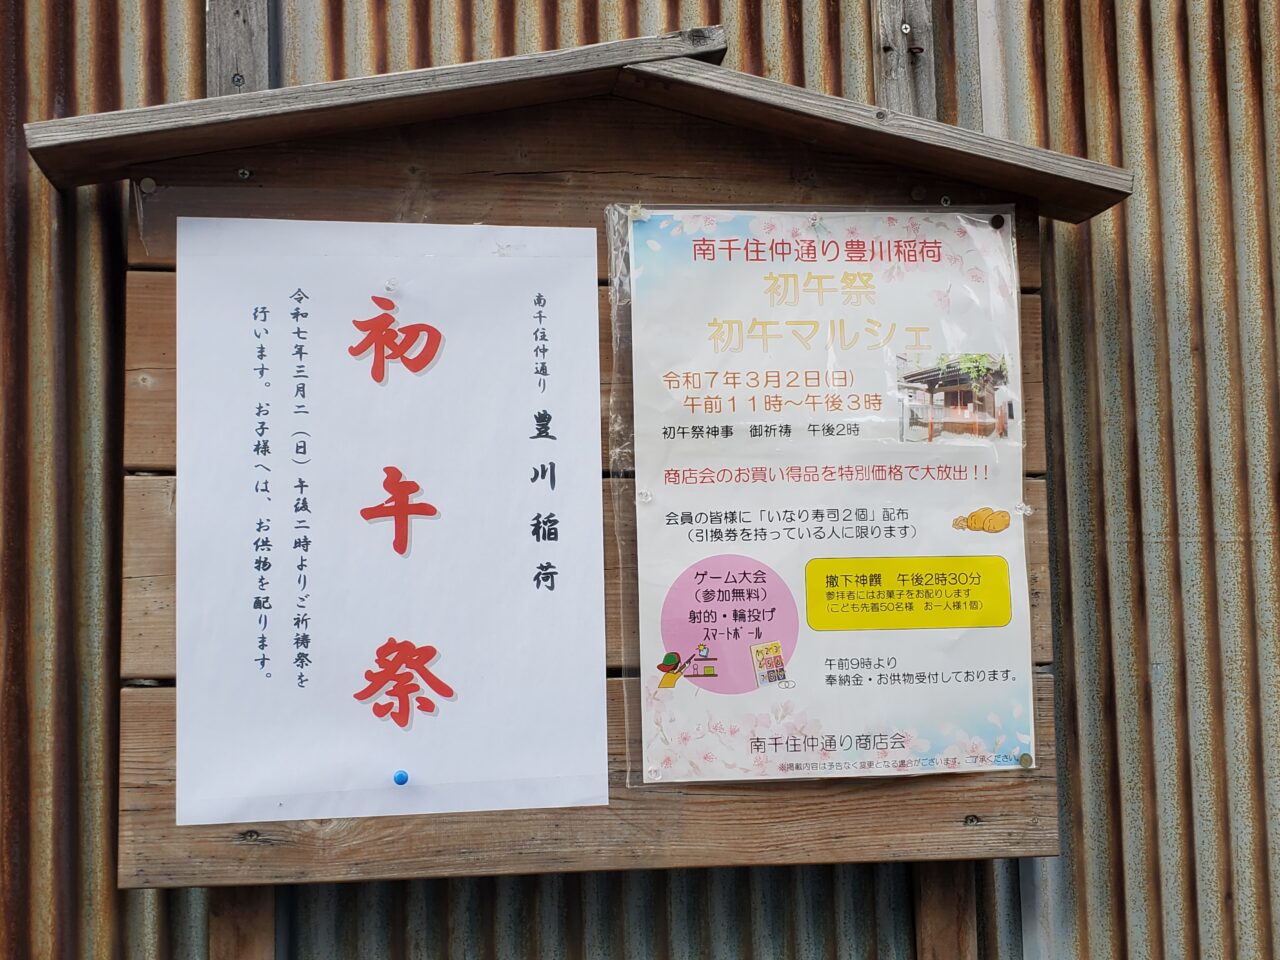 南千住仲通り 豊川稲荷
初午祭
令和七年三月二（日）午後二時よりご祈祷祭を
行います。お子様へは、お供物を配ります。
南千住仲通り豊川稲荷
初午祭
初午マルシェ
令和7年3月2日(日)
午前11時～午後3時
初午祭神事 御祈祷 午後2時
商店会のお買い得品を特別価格で大放出！！
会員の皆様に「いなり寿司2個」配布
（引換券を持っている人に限ります）
ゲーム大会
（参加無料）
射的・輪投げ
ｽﾏｰﾄﾎﾞｰﾙ
撤下神饌 午後2時30分
参拝者にはお菓子をお配りします
（こども先着50名様 お一人様1個）
午前9時より
奉納金・お供物受付しております。
南千住仲通り商店会
※掲載内容は予告なく変更となる場合がございます。ご了承ください。